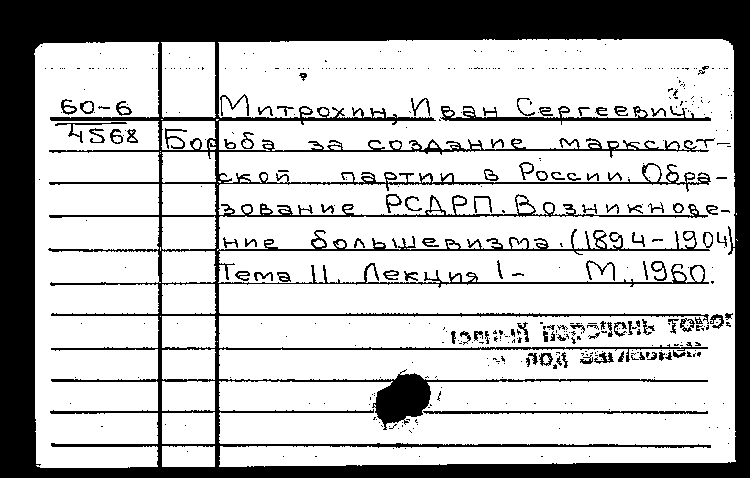 60-6
4568
Митрохин, Иван Сергеевич.
Борьба за создание марксист-
ской партии в России. Обра-
зование РСДРП. Возникнове-
ние большевизма. (1894-1904)
Тема II. Лекция 1- М., 1960.
перечень томов
под заглавной